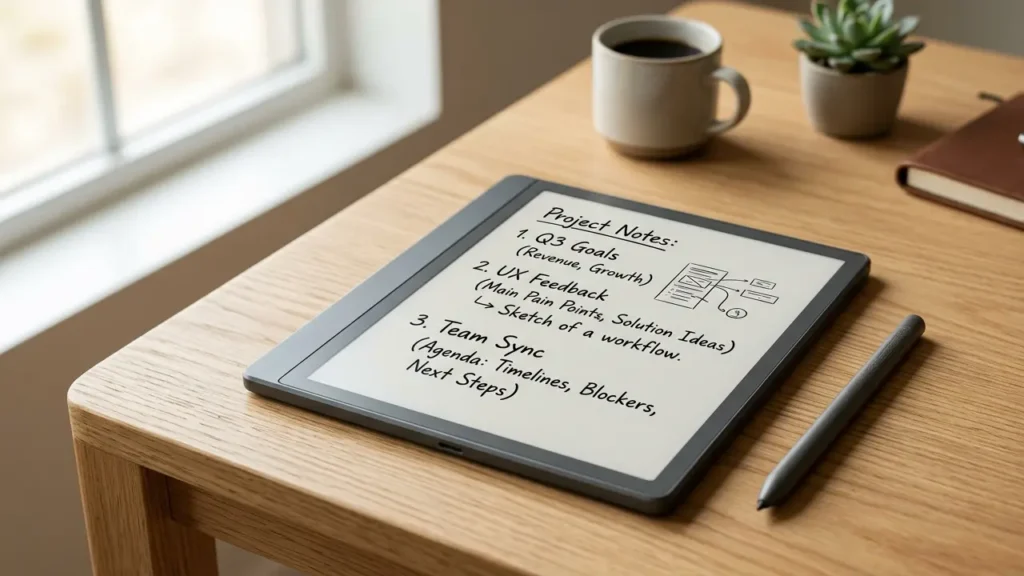 Project Notes:
1. Q3 Goals
(Revenue, Growth)
2. UX Feedback
(Main Pain Points, Solution Ideas)
↳ Sketch of a workflow.
3. Team Sync
(Agenda: Timelines, Blockers,
Next Steps)